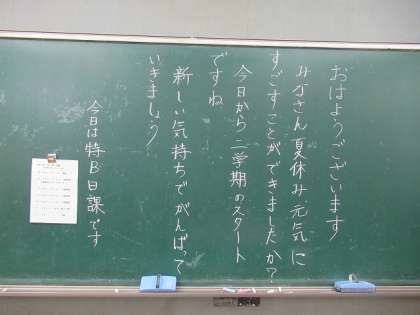 おはようございます
みなさん夏休み元気に
すごすことができましたか？
今日から二学期のスタート
ですね
新しい気持ちでがんばって
いきましょう
今日は特B日課です